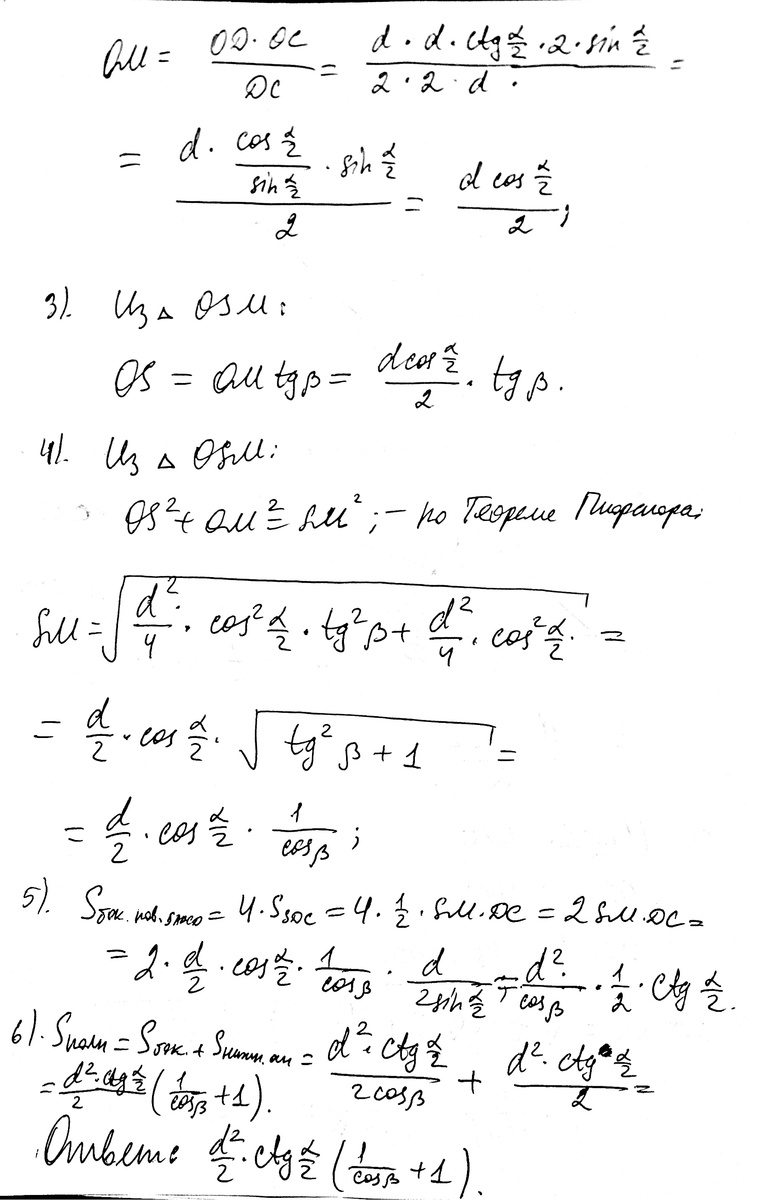 OM = (OD · OC)/(DC) = (d · d · ctg α/2 · 2 · sin α/2)/(2 · 2 · d ·) =
= (d · (cos α/2)/(sin α/2) · sin α/2)/2 = (d cos α/2)/2 ;
3). Из △ OSM:
OS = OM tg β = (d cos α/2)/2 · tg β.
4). Из △ OSM:
OS² + OM² = SM² ; – по Теореме Пифагора;
SM = √(d²/4 · cos² α/2 · tg² β + d²/4 · cos² α/2) =
= d/2 · cos α/2 · √(tg² β + 1) =
= d/2 · cos α/2 · 1/(cos β) ;
5). Sбок. пов. = 4 · SSDC = 4 · 1/2 · SM · DC = 2 SM · DC =
= 2 · d/2 · cos α/2 · 1/(cos β) · d/(2 sin α/2) = d²/(cos β) · 1/2 · ctg α/2.
6). Sполн = Sбок. + Sнижн. осн = (d² · ctg α/2)/(2 cos β) + (d² · ctg α/2)/2 =
= (d² · ctg α/2)/2 (1/(cos β) + 1).
Ответ: d²/2 · ctg α/2 (1/(cos β) + 1).